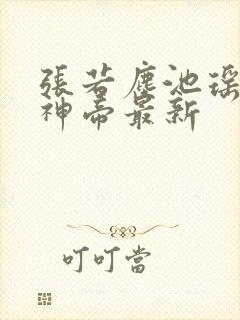 張若塵池瑤
神帝最新
叮叮當